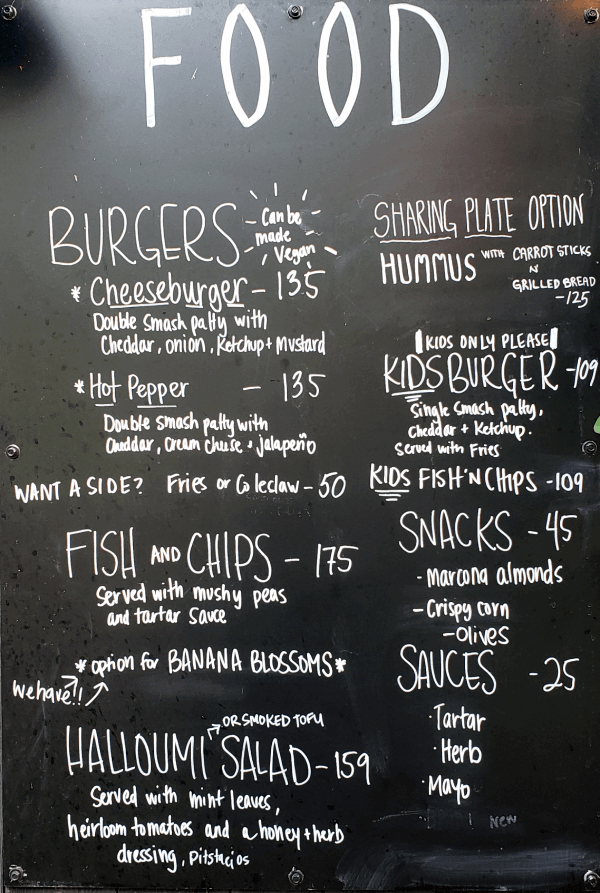 FOOD
BURGERS
Can be
made
Vegan
* Cheeseburger - 135
Double smash patty with
Cheddar, onion, Ketchup + Mustard
* Hot Pepper - 135
Double smash patty with
Cheddar, Cream Cheese + jalapeño
WANT A SIDE? Fries or Coleslaw - 50
FISH AND CHIPS - 175
Served with mushy peas
and tartar sauce
* option for BANANA BLOSSOMS *
we have!!
OR SMOKED TOFU
HALLOUMI SALAD - 159
Served with mint leaves,
heirloom tomatoes and a honey + herb
dressing, Pitstacios
SHARING PLATE OPTION
HUMMUS WITH CARROT STICKS
N'
GRILLED BREAD
- 125
KIDS ONLY PLEASE
KIDS BURGER - 109
Single smash patty,
Cheddar + Ketchup.
Served with Fries
KIDS FISH'N CHIPS - 109
SNACKS - 45
- Marcona almonds
- Crispy corn
- Olives
SAUCES - 25
· Tartar
· Herb
· Mayo
NEW